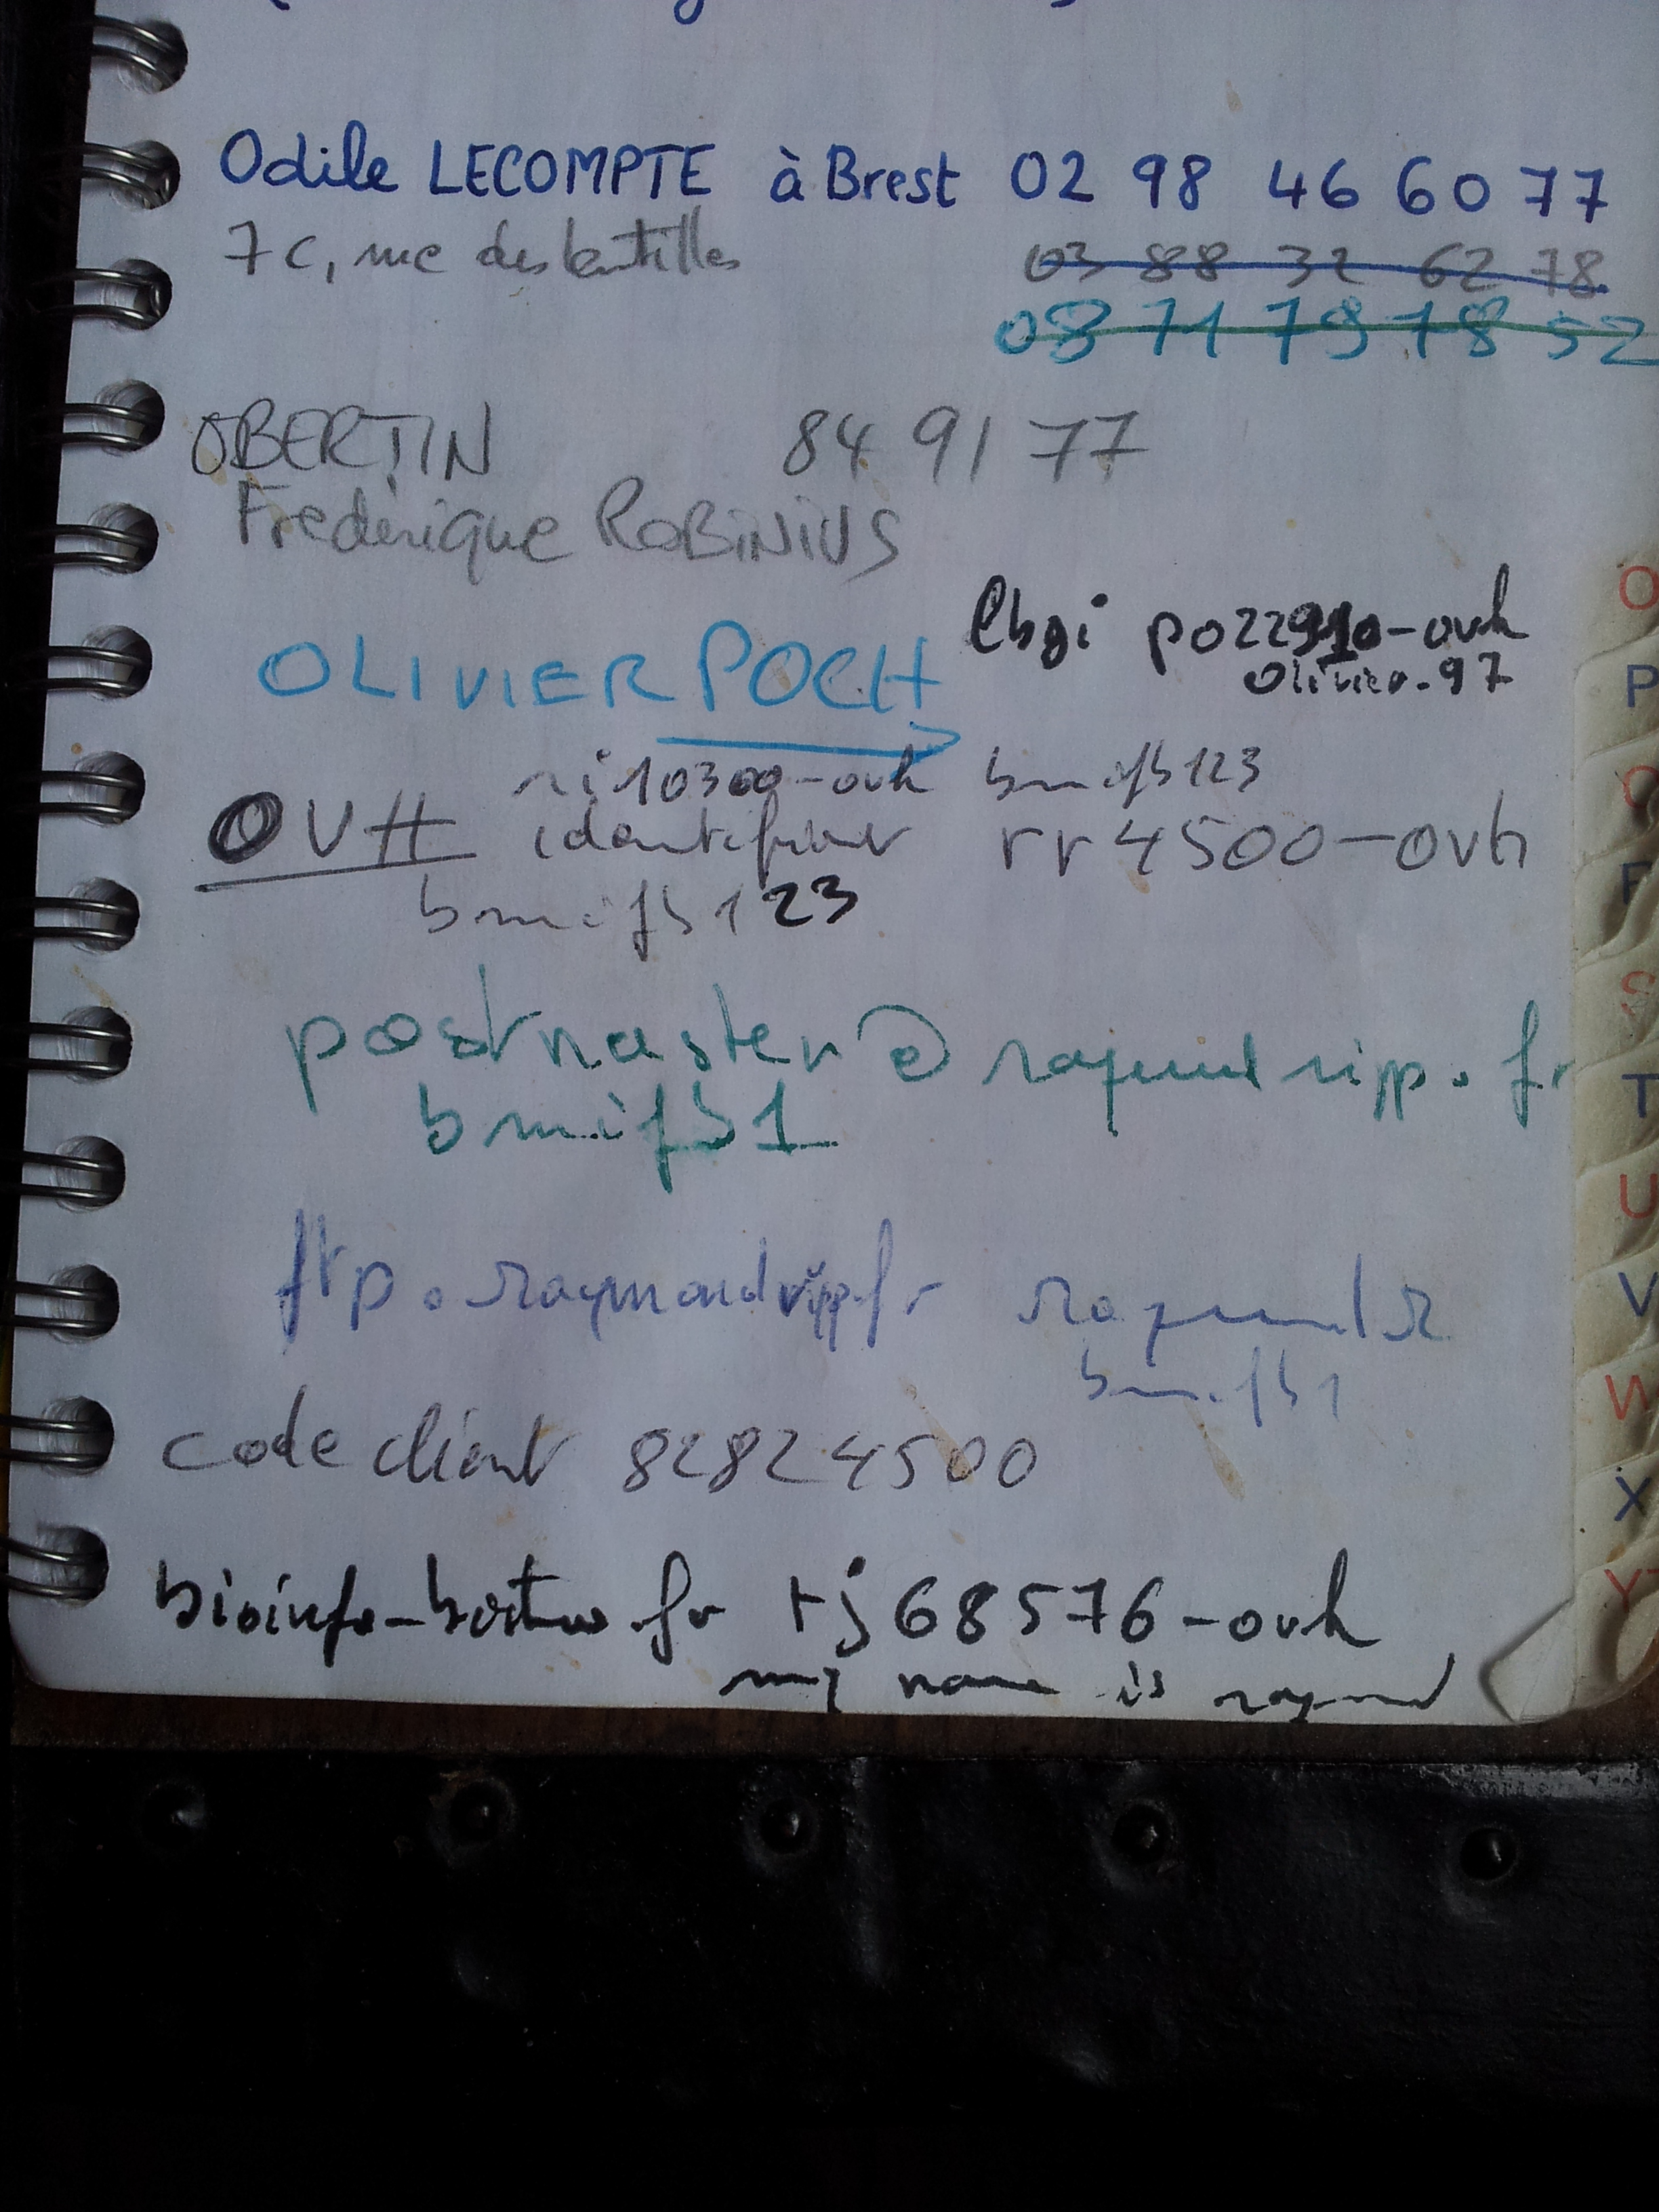 Odile LECOMPTE à Brest 02 98 46 60 77
7c, rue des lentilles 03 88 32 62 78
03 71 79 78 52
OBERTIN 84 91 77
Frédérique ROBINIUS
lbgi po22910-ovh
OLIVIER POCH olivier.97
ri10300-ovh bmifb123
OVH identifiant rr4500-ovh
bmifb123
postmaster@raymondripp.fr
bmifb1
ftp.raymondripp.fr raymondr
bmifb1
code client 82824500
bioinfo-bestus.fr rj68576-ovh
my name is raymond
O
P
Q
R
S
T
U
V
W
X
Y